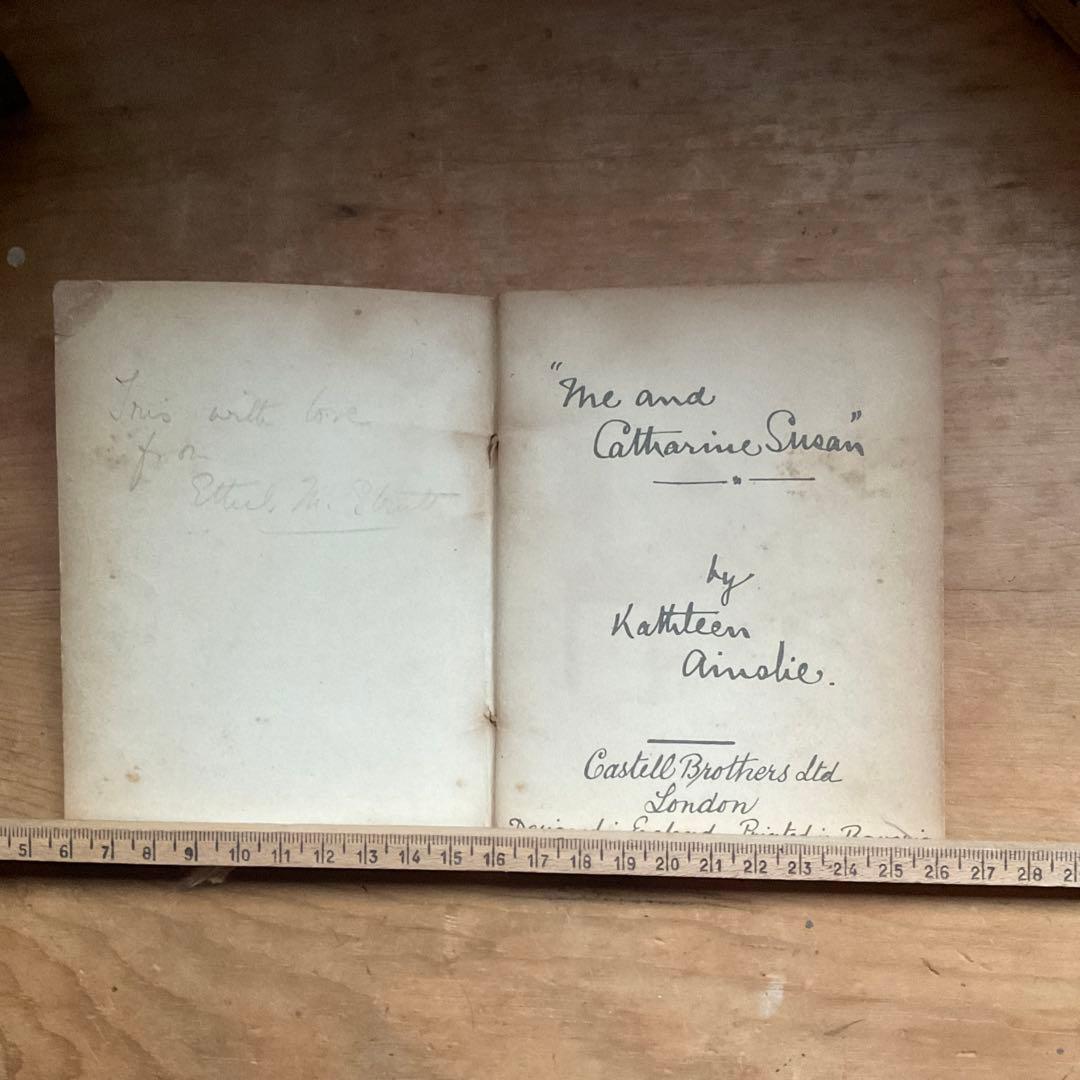 Iris with love
from
Ethel M.
"Me and
Catharine Susan"
by
Kathleen
Ainslie.
Castell Brothers Ltd
London
Designed in England Printed in Bavaria
5 6 7 8 9 10 11 12 13 14 15 16 17 18 19 20 21 22 23 24 25 26 27 28